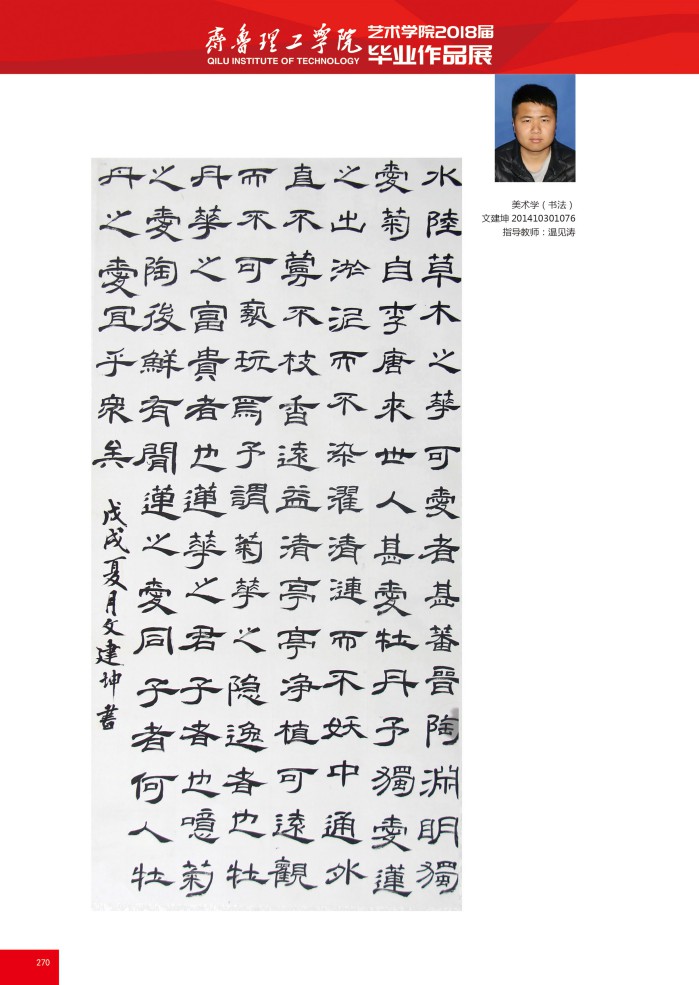 齊魯理工學院
QILU INSTITUTE OF TECHNOLOGY
艺术学院2018届
毕业作品展
美术学（书法）
文建坤 201410301076
指导教师：温见涛
水陸草木之華可愛者甚蕃晉陶淵明獨
愛菊自李唐來世人甚愛牡丹予獨愛蓮
之出淤泥而不染濯清漣而不妖中通外
直不蔓不枝香遠益清亭亭净植可遠觀
而不可褻玩焉予謂菊華之隐逸者也牡
丹華之富貴者也蓮華之君子者也噫菊
之愛陶後鮮有聞蓮之愛同予者何人牡
丹之愛宜乎衆矣
戊戌夏月文建坤書
270